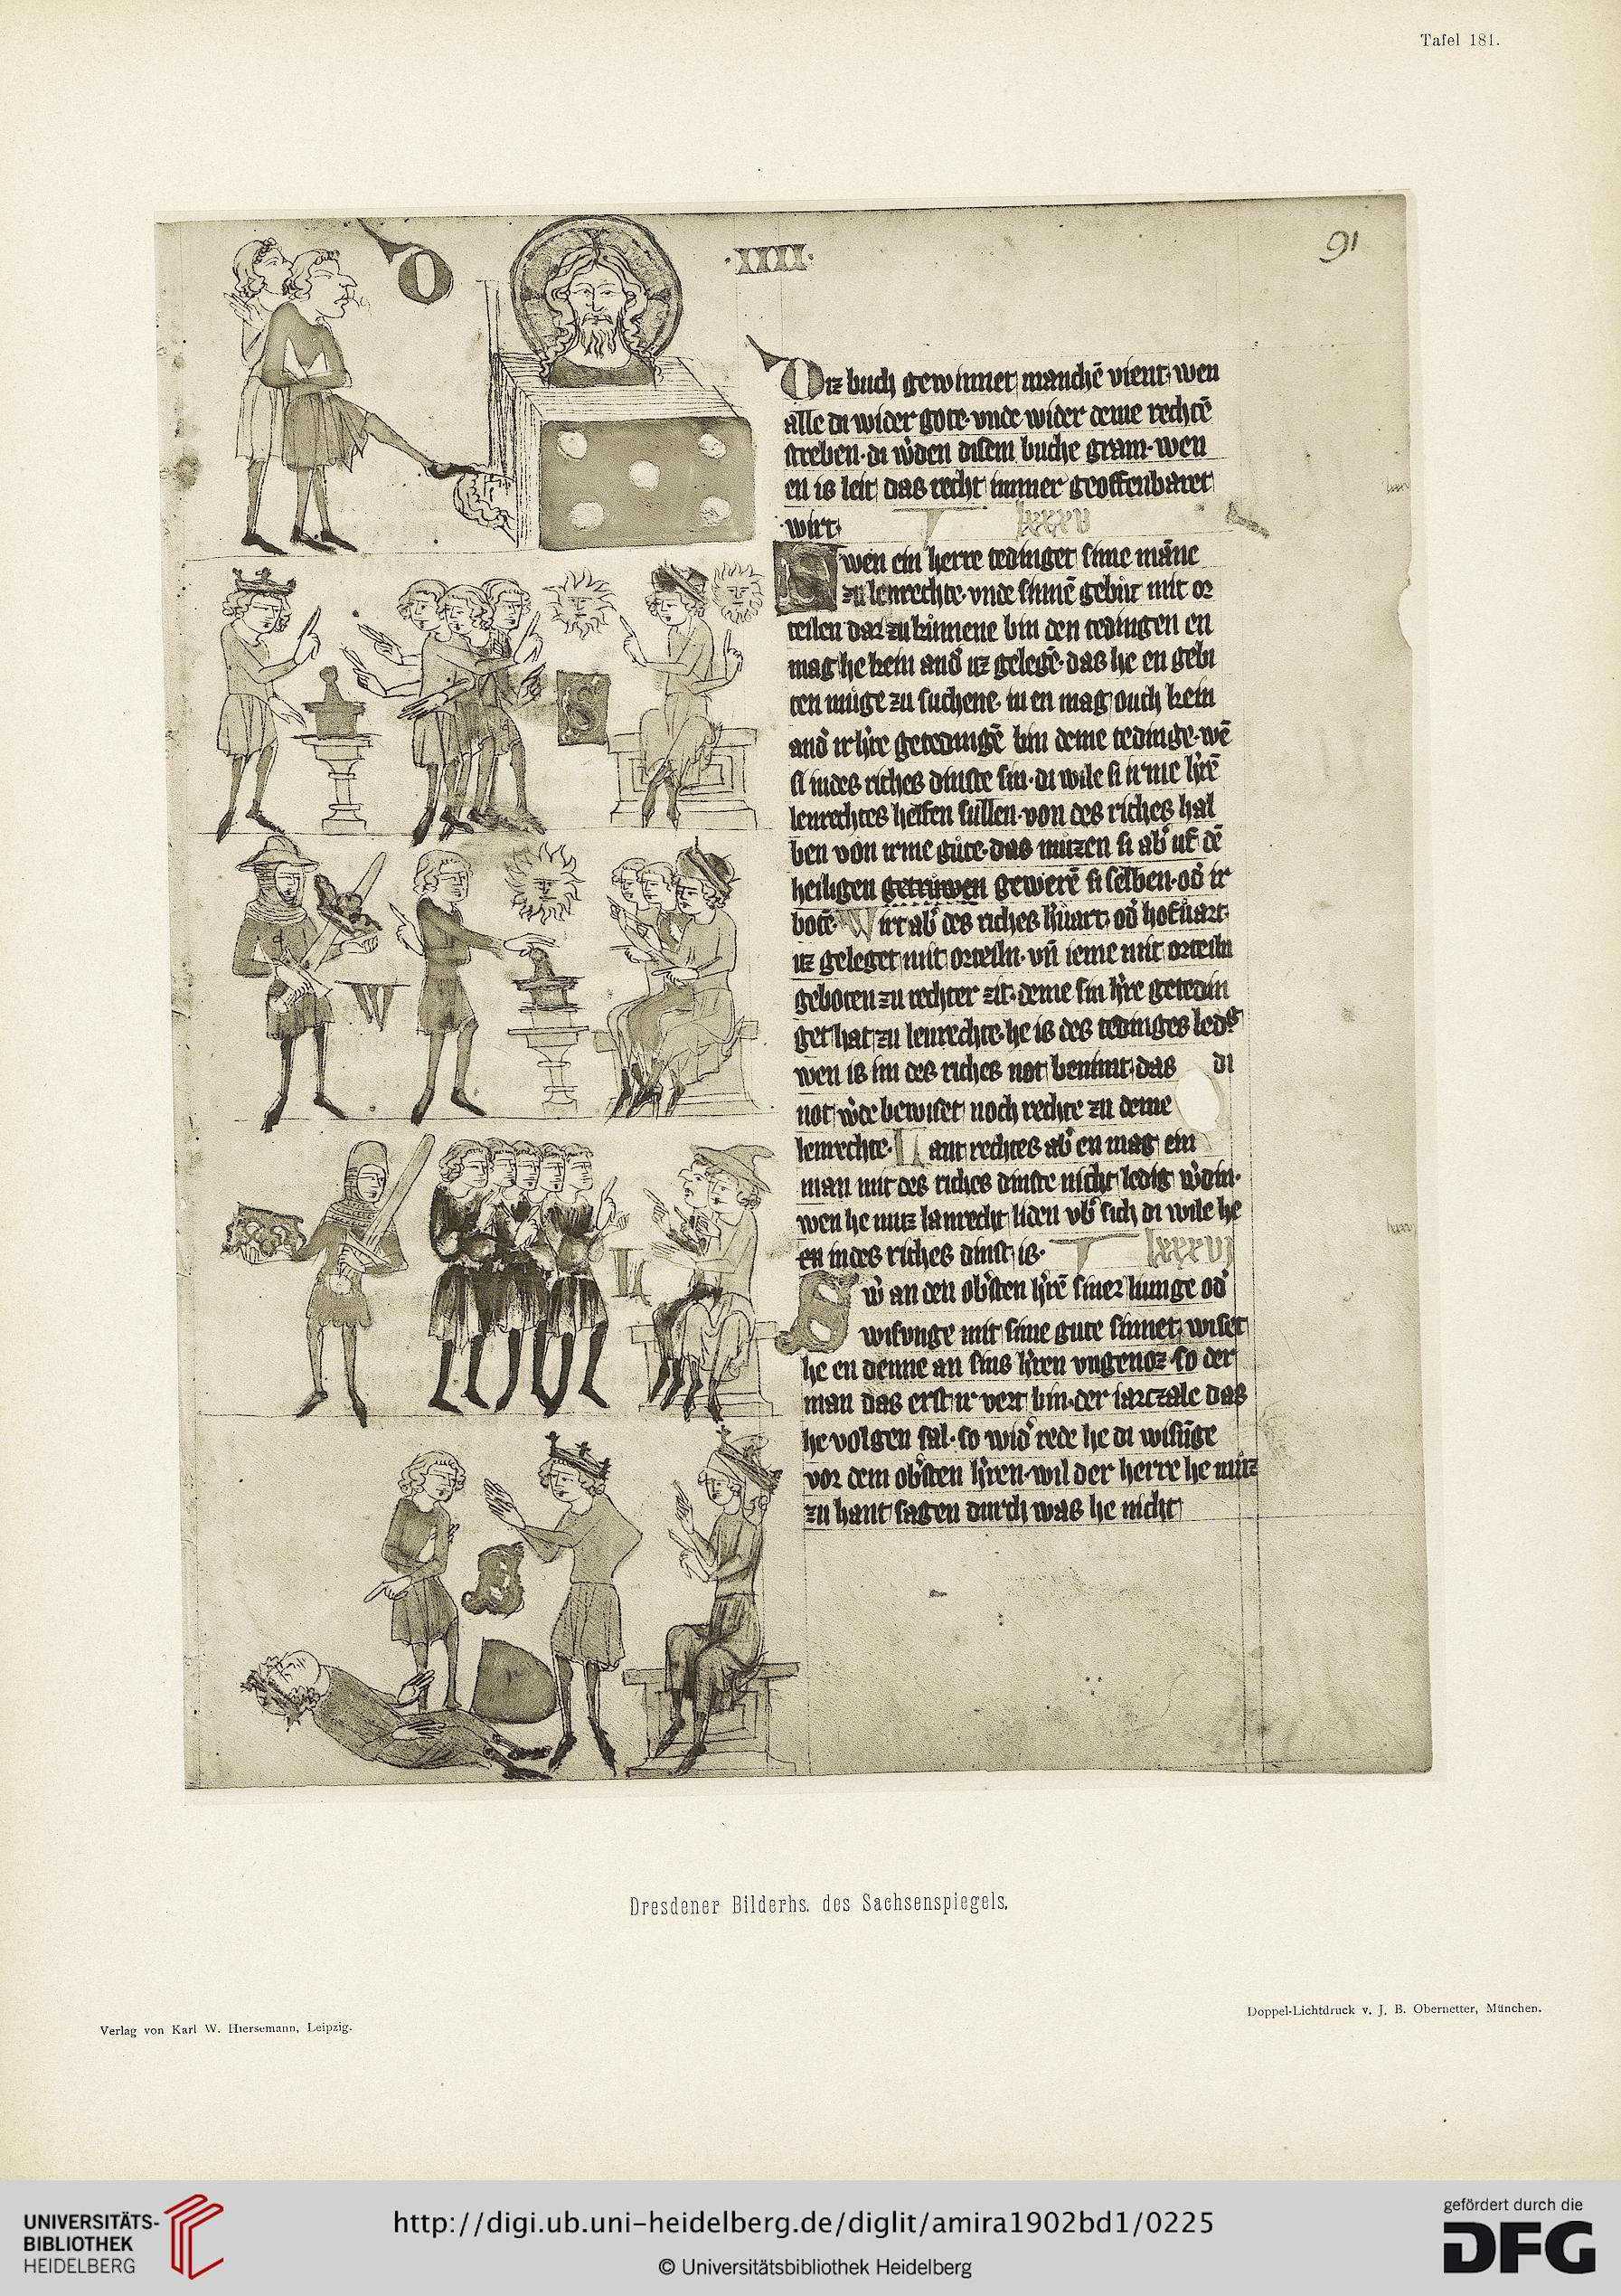 Tafel 181.
91
·IIII·
D
Diz buch gewinnet manchē vient· wen
alle di wider gote· vnde wider deme rechtē
streben· di w̓den disem buche gram· wen
en is leit das recht immer geoffenbaret
wirt· lxxxv
Swen ein herre tedinget sime māne
zu lenrechte· vnde sinnē gebut mit or
teilen dar zu kumene bin den tedingen en
mag he kein and̓ uz gelegē· das he en gebi
ten muge zu suchene· in en mag ouch kein
and̓ ir h̓re getedingē bin deme tedinge· wē
si in des riches dinste sin· di wile si irme h̓rē
lenrechtes helfen sullen· von des riches hal
ben von irme gute· das muzen si ab̓ uf dē
heiligen getruwen gewerē si selben· od̓ ir
botē· Wirt ab̓ des riches h̓uart· od̓ hofuart·
uz geleget mit orteiln· vn̄ ieme mit orteiln
geboten zu rechter zit· deme sin h̓re getedin
get hat zu lenrechte· he is des tedinges led̓g
wen is im des riches not benimt· das di
not w̓de bewiset noch rechte zu deme
lenrechte· Lant rechtes ab̓ en mag ein
man mit des riches dinste nicht ledig w̓din·
wen he muz lantrecht liden vb̓ sich di wile he
en in des riches dinst is· lxxxvi
Sw̓ an den ob̓sten h̓rē siner lunge od̓
wisunge mit sime gute sinnet· wiset
he en denne an sins h̓ren vngenoz· so der
man das erst ir vert bin der iarczale das
he volgen sal· so wid̓ rede he di wisūge
vor dem ob̓sten h̓ren· wil der herre he muz
zu hant sagen durch was he nicht
S
L
S
Dresdener Bilderhs. des Sachsenspiegels.
Verlag von Karl W. Hiersemann, Leipzig.
Doppel-Lichtdruck v. J. B. Obernetter, München.
UNIVERSITÄTS-
BIBLIOTHEK
HEIDELBERG
http://digi.ub.uni-heidelberg.de/diglit/amira1902bd1/0225
© Universitätsbibliothek Heidelberg
gefördert durch die
DFG